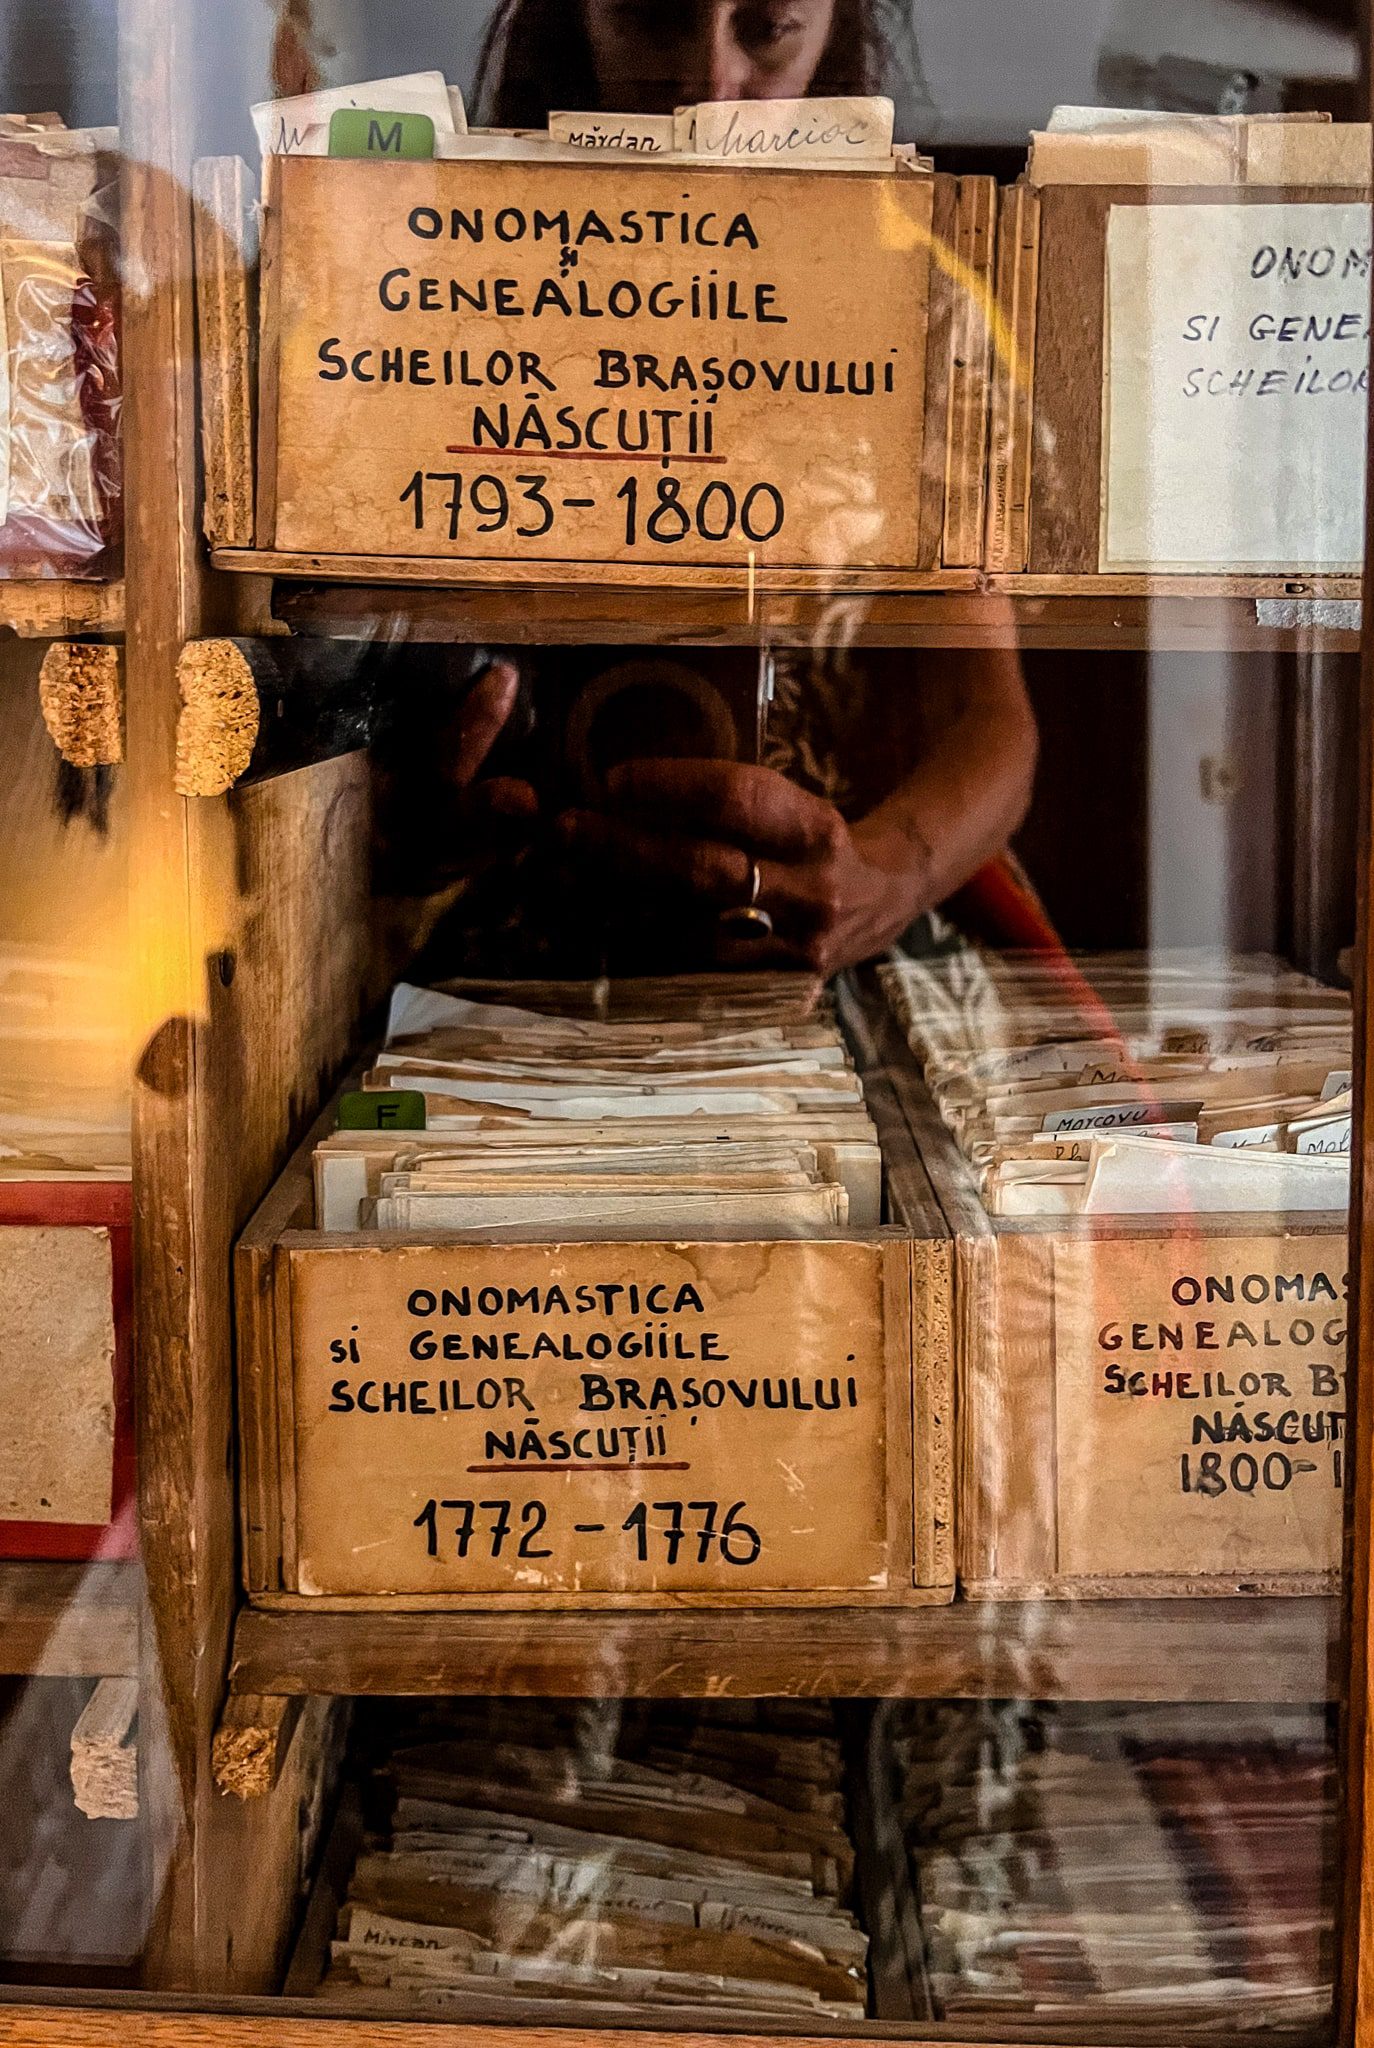 M
Mărdan
Marcioc
ONOMASTICA
și
GENEALOGIILE
SCHEILOR BRAȘOVULUI
NĂSCUȚII
1793-1800
ONOM
SI GENE
SCHEILOR
F
Morcovu
ONOMASTICA
si GENEALOGIILE
SCHEILOR BRAȘOVULUI
NĂSCUȚII
1772-1776
ONOMAS
GENEALOG
SCHEILOR B
NĂSCUȚ
1800-1
Mircan